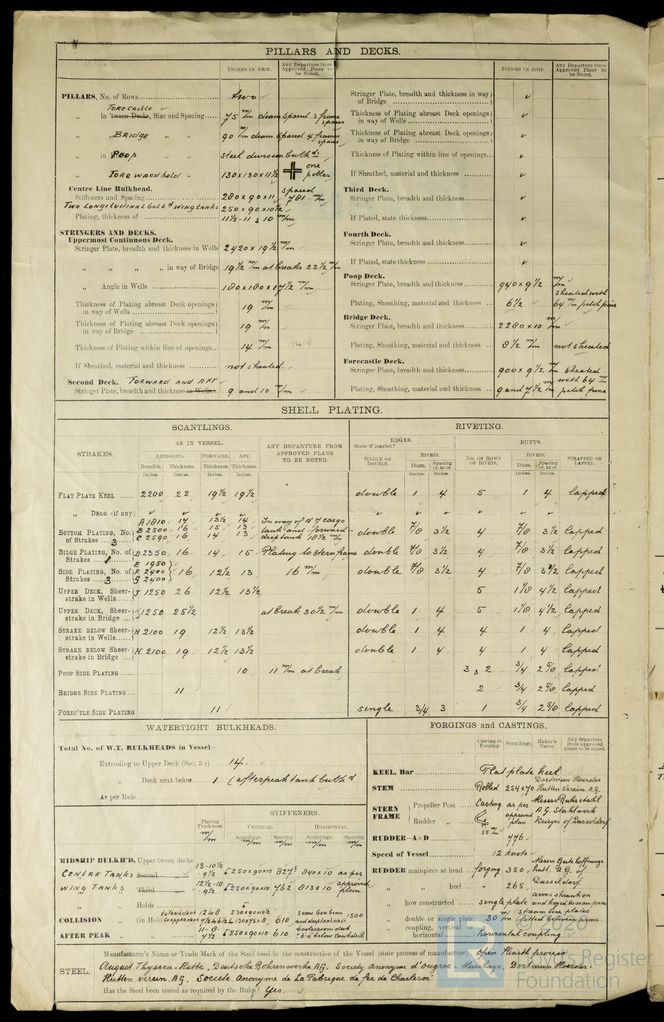 PILLARS AND DECKS.
INCHES IN SHIP.
Any Departure from Approved Plans to be Noted.
PILLARS, No. of Rows two
Forecastle
„ in tween Decks, Size and Spacing 75 m/m diam spaced 3 frame spaces
„ BRIDGE 90 m/m diam spaced 4 frame spaces
„ in Poop steel division bulkhds
„ FOREWARD hold 130 x 130 x 11½ one pillar
Centre Line Bulkhead.
Stiffeners and Spacing 280 x 90 x 11 spaced 781 m/m
Two LONGITUDINAL bulkd WING tanks 250 x 90 x 10½
Plating, thickness of 11½ - 11 & 10 m/m
STRINGERS AND DECKS.
Uppermost Continuous Deck.
Stringer Plate, breadth and thickness in Wells 2420 x 19½ m/m
„ „ „ „ in way of Bridge 19½ m/m at breaks 22½ m/m
„ Angle in Wells 180 x 180 x 17½ m/m
Thickness of Plating abreast Deck openings in way of Wells 19 m/m
Thickness of Plating abreast Deck openings in way of Bridge 19 m/m
Thickness of Plating within line of openings 14 m/m
If Sheathed, material and thickness not sheathed
Second Deck. FORWARD AND AFT
Stringer Plate, breadth and thickness in Wells 9 and 10 m/m
INCHES IN SHIP.
Any Departure from Approved Plans to be Noted.
Stringer Plate, breadth and thickness in way of Bridge ✓
Thickness of Plating abreast Deck openings in way of Wells ✓
Thickness of Plating abreast Deck openings in way of Bridge ✓
Thickness of Plating within line of openings ✓
If Sheathed, material and thickness ✓
Third Deck.
Stringer Plate, breadth and thickness ✓
If Plated, state thickness ✓
Fourth Deck.
Stringer Plate, breadth and thickness ✓
If Plated, state thickness ✓
Poop Deck.
Stringer Plate, breadth and thickness 940 x 9½ m/m
Plating, Sheathing, material and thickness 6½ sheated with 64 m/m pitch pine
Bridge Deck.
Stringer Plate, breadth and thickness 2280 x 10 m/m
Plating, Sheathing, material and thickness 8½ m/m not sheated
Forecastle Deck.
Stringer Plate, breadth and thickness 900 x 9½ m/m sheated
Plating, Sheathing, material and thickness 9 and 7½ m/m with 64 m/m pitch pine
SHELL PLATING.
SCANTLINGS.
RIVETING.
STRAKES.
AS IN VESSEL.
AMIDSHIPS. FORWARD. AFT.
Breadth. Thickness. Thickness. Thickness.
Inches. Inches. Inches. Inches.
ANY DEPARTURE FROM APPROVED PLANS TO BE NOTED.
EDGES.
State if joggled?
SINGLE OR DOUBLE.
RIVETS.
Diam. Spacing cr. to cr.
Inches. Inches.
BUTTS.
NO. OF ROWS OF RIVETS.
RIVETS.
Diam. Spacing cr. to cr.
Inches. Inches.
STRAPPED OR LAPPED.
FLAT PLATE KEEL 2200 22 19½ 19½ double 1 4 5 1 4 lapped
„ DBLG. (if any) ✓ ✓ ✓ ✓
BOTTOM PLATING, No. of Strakes 3
A 1810 17 13½ 14
B 2500 16 15 13
C 2590 16 14 13
In way of No 7 cargo tank and forward deep tank 18½ m/m
double 7/8 3½ 4 7/8 3½ lapped
BILGE PLATING, No. of Strakes 1 D 2350 16 14 15 Plating to stern frame double 7/8 3½ 4 7/8 3½ lapped
SIDE PLATING, No. of Strakes 3
E 1950
F 2400 16 12½ 13 16 m/m double 7/8 3½ 4 7/8 3½ lapped
G 2400
UPPER DECK, Sheerstrake in Wells J 1250 26 12½ 13½ 5 1⅛ 4½ lapped
UPPER DECK, Sheerstrake in Bridge J 1250 25½ at break 30½ m/m double 1 4 5 1⅛ 4½ lapped
STRAKE BELOW Sheerstrake in Wells H 2100 19 12½ 13½ double 1 4 4 1 4 lapped
STRAKE BELOW Sheerstrake in Bridge H 2100 19 12½ 13½ double 1 4 4 1 4 lapped
POOP SIDE PLATING 10 11 m/m at break 3 & 2 3/4 2 5/8 lapped
BRIDGE SIDE PLATING 11 2 3/4 2 5/8 lapped
FORECTLE SIDE PLATING 11 single 3/4 3 1 3/4 2 5/8 lapped
WATERTIGHT BULKHEADS.
Total No. of W.T. BULKHEADS in Vessel—
Extending to Upper Deck (Sec. 3 c) 14
„ Deck next below 1 (afterpeak tank bulkhd
As per Rule
STIFFENERS.
Plating Thickness m/m
VERTICAL
HORIZONTAL.
Scantlings. Spacing. Scantlings. Spacing.
MIDSHIP BULKH'D, Upper tween decks
CENTRE TANKS Second 13-10½ 9½ 250x90x10 827 840x10 as per
WING TANKS Third 12½-10 9½ 250x90x10 762 813x10 approved plan
„ Holds
COLLISION „ (in Hold) 230x90x10½ 610 1500
AFTER PEAK 11-8 7½ 250x90x10 610
FORGINGS and CASTINGS.
Casting or Forging.
Scantlings.
Maker's Name.
Any departure from approved plans to be noted.
KEEL, Bar Flat plate keel
STEM Rolled 254x70 Dortmund Hoerder Hutten Verein A.G.
STERN FRAME Propeller Post Casting as per approved plan Messrs Ruhrstahl A.G. Stahlwerk Krieger of Dusseldorf
Rudder „
RUDDER—A x D 776
Speed of Vessel 12 knots
RUDDER mainpiece at head forging 350 Messrs Gute hoffnungs hutte A.G. of
„ „ heel 265 Dusseldorf
„ how constructed single plate arms shrunk on and keyed to main piece
„ double or single plate 30 m/m fitted between arms
„ coupling, vertical or horizontal horizontal coupling
STEEL.
Manufacturer's Name or Trade Mark of the Steel used in the construction of the Vessel (state process of manufacture) Open Hearth process
August Thyssen-Hutte, Deutsche Rohrenwerke A.G. Society anonyme d'ougree Marihaye, Dortmund Hoerder
Hutten Verein A.G. Societe Anonyme de La Fabrique de fer de Charleroi
Has the Steel been tested as required by the Rules? Yes.
© 2020
Lloyd's Register
Foundation